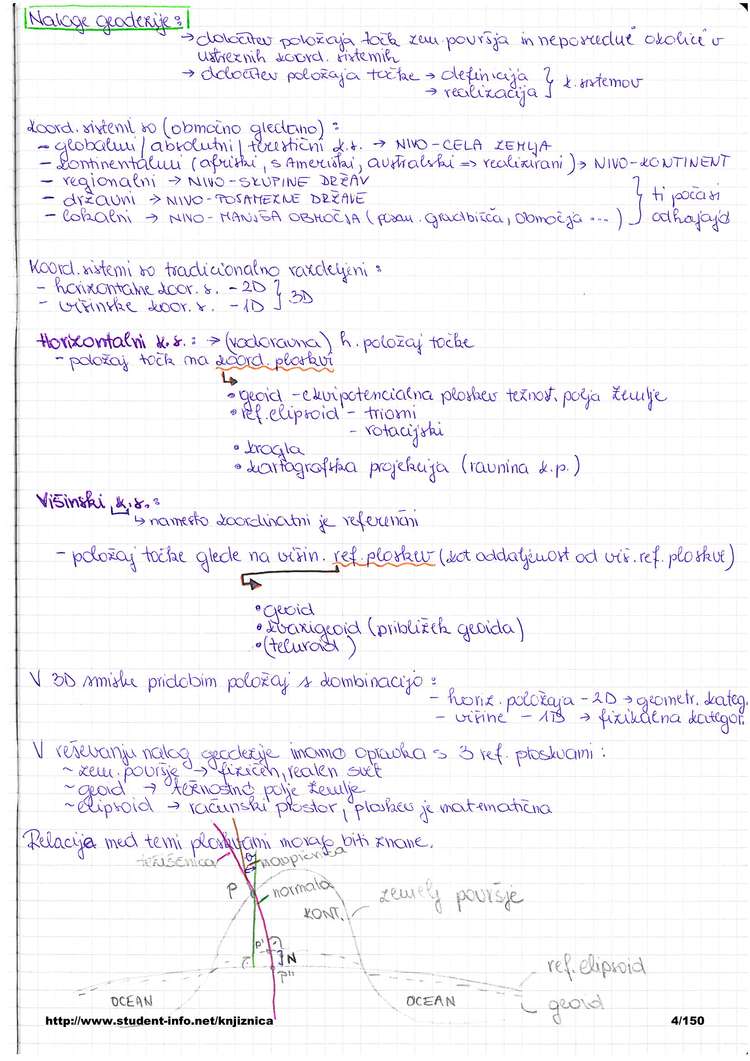 Naloge geodezije:
→ določitev položaja točk zem. površja in neposredne okolice v
ustreznih koord. sistemih
→ določitev položaja točke → definicija } k. sistemov
→ realizacija
Koord. sistemi so (območno gledano):
- globalni / absolutni / terestični k.s. → NIVO-CELA ZEMLJA
- kontinentalni (afriški, s Ameriški, australski => realizirani) → NIVO-KONTINENT
- regionalni → NIVO-SKUPINE DRŽAV
- državni → NIVO-POSAMEZNE DRŽAVE } ti počasi
- lokalni → NIVO-MANJŠA OBMOČJA (posam. gradbišča, območja ...) odhajajo
Koord. sistemi so tradicionalno razdeljeni:
- horizontalne koor. s. - 2D } 3D
- višinske koor. s. - 1D
Horizontalni k.s.: → (vodoravna) h. položaj točke
- položaj točk na koord. ploskvi
• geoid - ekvipotencialna ploskev težnost. polja Zemlje
• ref. elipsoid - triosni
- rotacijski
• krogla
• kartografska projekcija (ravnina k.p.)
Višinski k.s.:
↳ namesto koordinatni je referenčni
- položaj točke glede na višin. ref. ploskev (kot oddaljenost od viš. ref. ploskve)
• geoid
• kvazigeoid (približek geoida)
• (teluroid)
V 3D smislu pridobim položaj s kombinacijo:
- horiz. položaja - 2D → geometr. kateg.
- višine - 1D → fizikalna kategor.
V reševanju nalog geodezije imamo opravka s 3 ref. ploskvami:
~ zem. površje → fizičen, realen svet
~ geoid → težnostno polje Zemlje
~ elipsoid → računski prostor, ploskev je matematična
Relacija med temi ploskvami morajo biti znane.
težiščnica
navpičnica
P
normala
KONT.
zemelj površje
P'
N
P''
ref. elipsoid
OCEAN
OCEAN
geoid
http://www.student-info.net/knjiznica
4/150